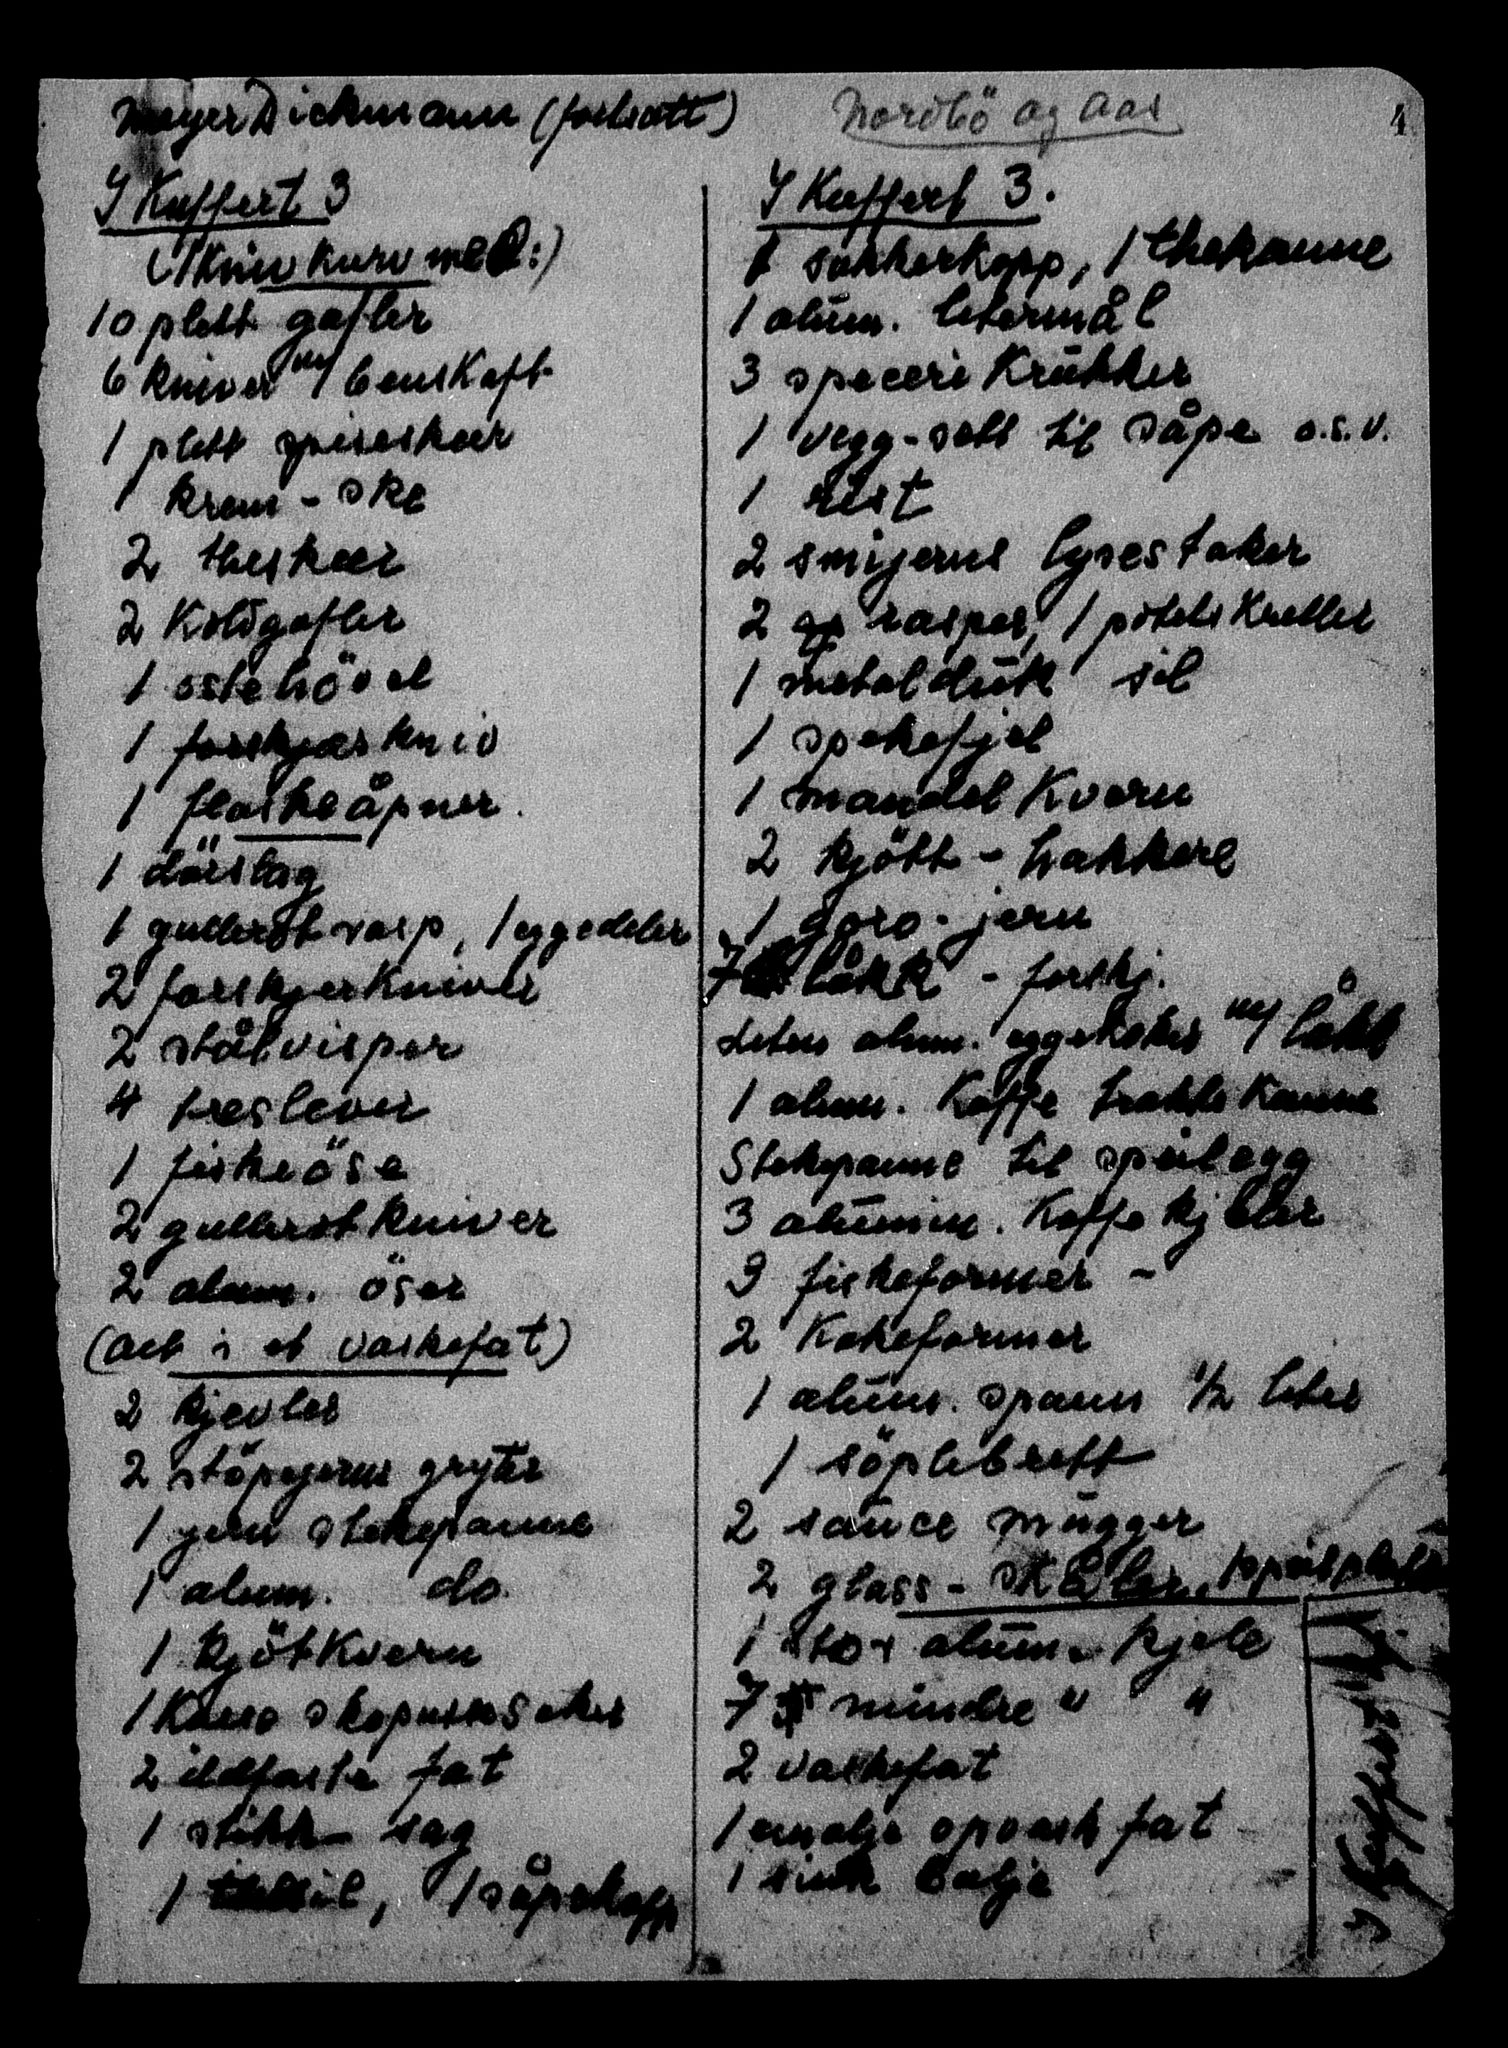 Mayer Dickmann (fortsatt)
Nordbö og Aas
4
I Kuffert 3
(1 Knivkurv med:)
10 plett gafler
6 kniver m/ benskaft
1 plett spiseskeer
1 krem-ske
2 theskeer
2 Koldgafler
1 ostehövel
1 forskjærkniv
1 flaskeåpner.
1 dörslag
1 gullerotrasp, 1 eggedeler
2 forskjerkniver
2 stålvisper
4 treslever
1 fiskeöse
2 gullerotkniver
2 alum. öser
(alt i et vaskefat)
2 kjevler
2 stöpejerns gryter
1 jern stekepanne
1 alum. do.
1 kjötkvern
1 Kasse skopusssaker
2 ildfaste fat
1 stikk-sag
1 thesil, 1 såpekopp
I Kuffert 3.
1 sukkerkopp, 1 thekanne
1 alūm. litermål
3 speceri Krūkker
1 vegg-sett til såpe o.s.v.
1 rist
2 smijerns lysestaker
2 rasper, 1 potetskreller
1 metaldūk sil
1 spekefjel
1 mandel Kvern
2 kjött-hakkere
1 goro-jern
7 låkk - forskj.
liten alum. eggekoker m/ låkk
1 alum. Kaffe trakte Kanne
Stekepanne til speilegg
3 alūmin. Kaffe kjeler
3 fiskeformer -
2 Kakeformer
1 alūm. spann 1/2 liter
1 söplebrett
2 saūce mūgger
2 glass-skåler,
1 stor alūm. kjele
7 mindre " "
2 vaskefat
1 emalje opvask fat
1 sink balje
I Kuffert